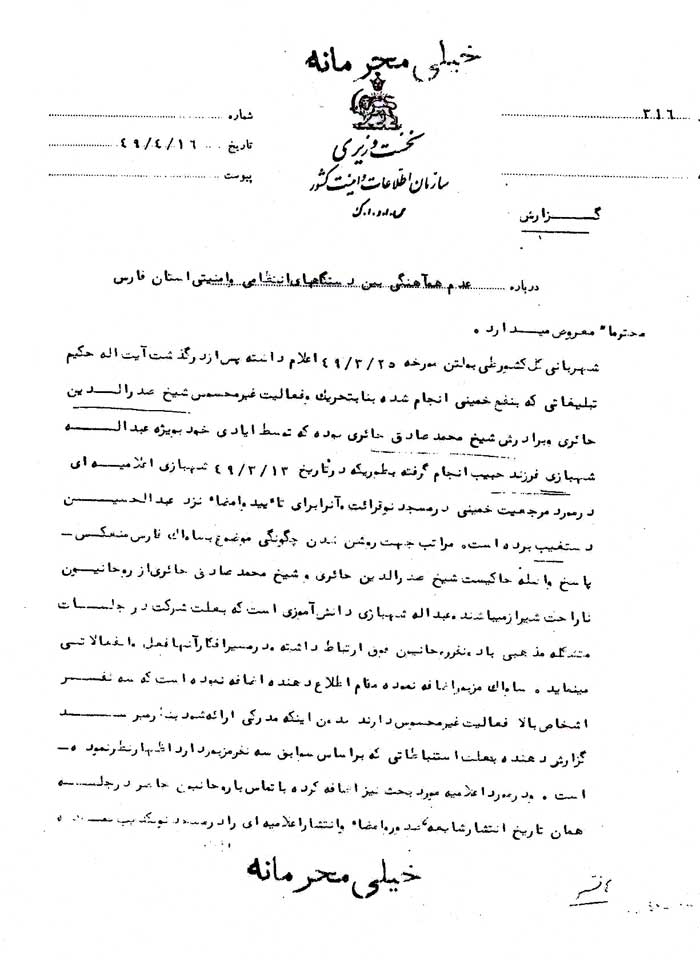 خیلی محرمانه
۳۱۶
شماره
نخست وزیری
تاریخ ۴۹/۴/۱۶
سازمان اطلاعات و امنیت کشور
پیوست
س.ا.و.ا.ک
گزارش
درباره عدم همآهنگی بین دستگاههای انتظامی و امنیتی استان فارس
محترما" معروض میدارد.
شهربانی کل کشور طی بولتن مورخه ۴۹/۳/۲۵ اعلام داشته پس از درگذشت آیت اله حکیم
تبلیغاتی که بنفع خمینی انجام شده بنا بتحریک و فعالیت غیرمحسوس شیخ صدرالدین
حائری و برادرش شیخ محمد صادق حائری بوده که توسط ایادی خود بویژه عبداله
شهبازی فرزند حبیب انجام گرفته بطوریکه در تاریخ ۴۹/۳/۱۳ شهبازی اعلامیه ای
در مورد مرجعیت خمینی در مسجد نو قرائت و آنرا برای تاءیید و امضاء نزد عبدالحسین
دستغیب برده است. مراتب جهت روشن شدن چگونگی موضوع بساواک فارس منعکس
پاسخ واصله حاکیست شیخ صدرالدین حائری و شیخ محمد صادق حائری از روحانیون
ناراحت شیراز میباشند. عبداله شهبازی دانش آموزی است که بعلت شرکت در جلسات
متشکله مذهبی با دو نفر روحانیون فوق ارتباط داشته و در مسیر افکار آنها فعل و انفعالاتی
مینماید. ساواک مزبور اضافه نموده مقام اطلاع دهنده اضافه نموده است که سه نفر
اشخاص بالا فعالیت غیرمحسوس دارند بدون اینکه مدرکی ارائه شود بنظر میرسد
گزارش دهنده بعلت استنباطاتی که براساس سوابق سه نفر مزبور دارد اظهارنظر نموده
است. و در مورد اعلامیه مورد بحث نیز اضافه کرده با تماس با روحانیون حاضر در جلسه
همان تاریخ انتشار شایعه صدور و امضاء و انتشار اعلامیه ای را در مسجد نو تکذیب
خیلی محرمانه